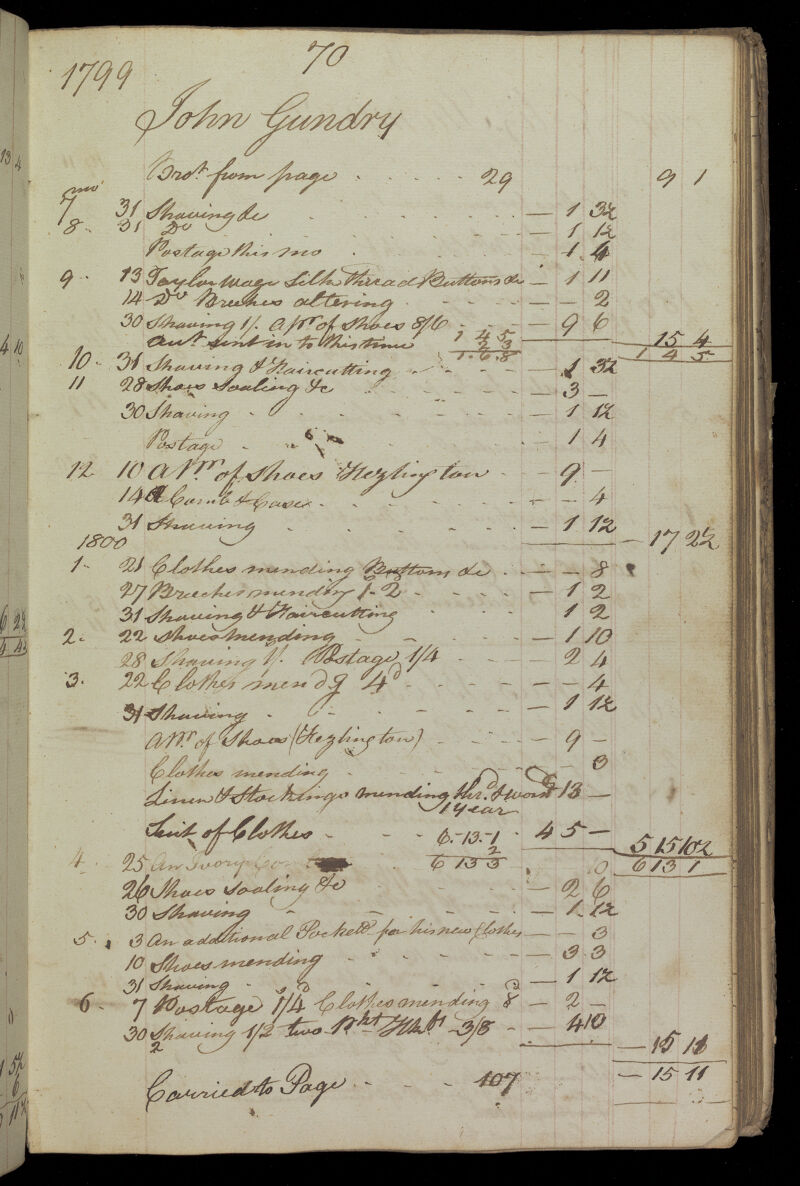 70
1799
John Gundry
Brot. from page 29 9 1
mo
7 31 Shaving &c — 1 3½
8 31 Do — 1 1½
Postage this mo — 1 4
9 13 Taylor wage Silk Thread Buttons &c — 1 11
14 Do Breeches altering — — 2
30 Shaving 1/. A Pr. of Shoes 8/6 — 9 6
15 4
Aut. sent in to this time 1 4 5
2 3
1 . 6 . 8
1 4 5
10 31 Shaving & Haircutting 1 3½
11 28 Shoes Soaling &c — 3 —
30 Shaving — 1 1½
Postage — 1 4
12 10 A Pr. of Shoes Hezlington — 9 —
14 A Comb & Case — — 4
31 Shaving — 1 1½
— 17 2½
1800
1 21 Clothes mending Buttons &c — — 8
27 Breeches mending 1-2 — 1 2
31 Shaving & Haircutting 1 2
2 22 Shoes mending — 1 10
28 Shaving 1/. Postage 1/4 — 2 4
3 22 Clothes mendg 4d — — 4
31 Shaving — 1 1½
A Pr. of Shoes (Hezlington) — 9 —
Clothes mending 3
Linen & Stockings mending thrd. & worsd 13 —
1 year
Suit of Clothes 6.-13.-1 4 5 —
2
5 15 10½
4 25 An Ivory 6 13 3
6 13 1
26 Shoes soaling &c — 2 6
30 Shaving — 1 1½
5 3 An additional Pocket for his new Clothes — — 3
10 Shoes mending — 3 3
31 Shaving — 1 1½
6 7 Postage 1/4 Clothes mending 8d — 2 —
30 Shaving 1/2 two Pkt Hkfs 3/8 — 4 10
2
— 15 11
Carried to Page 107 — 15 11